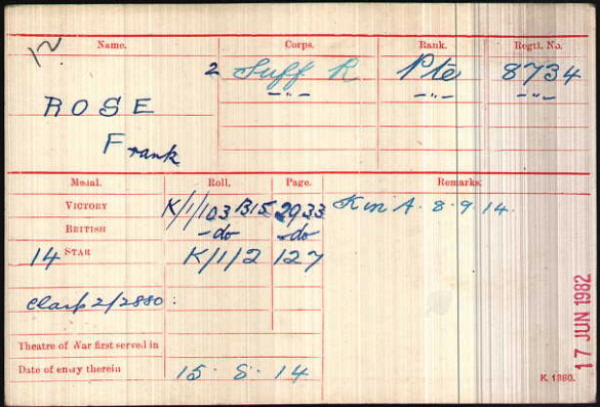 12
Name. Corps. Rank. Regtl. No.
2 Suff R Pte 8734
-"- -"- -"-
ROSE
Frank
Medal. Roll. Page. Remarks.
VICTORY K/1/103 B15 2933 K in A. 8.9.14.
BRITISH -do- -do-
14 STAR K/1/2 127
Clasp 2/2880.
Theatre of War first served in
Date of entry therein 15.8.14
K. 1380.
17 JUN 1982